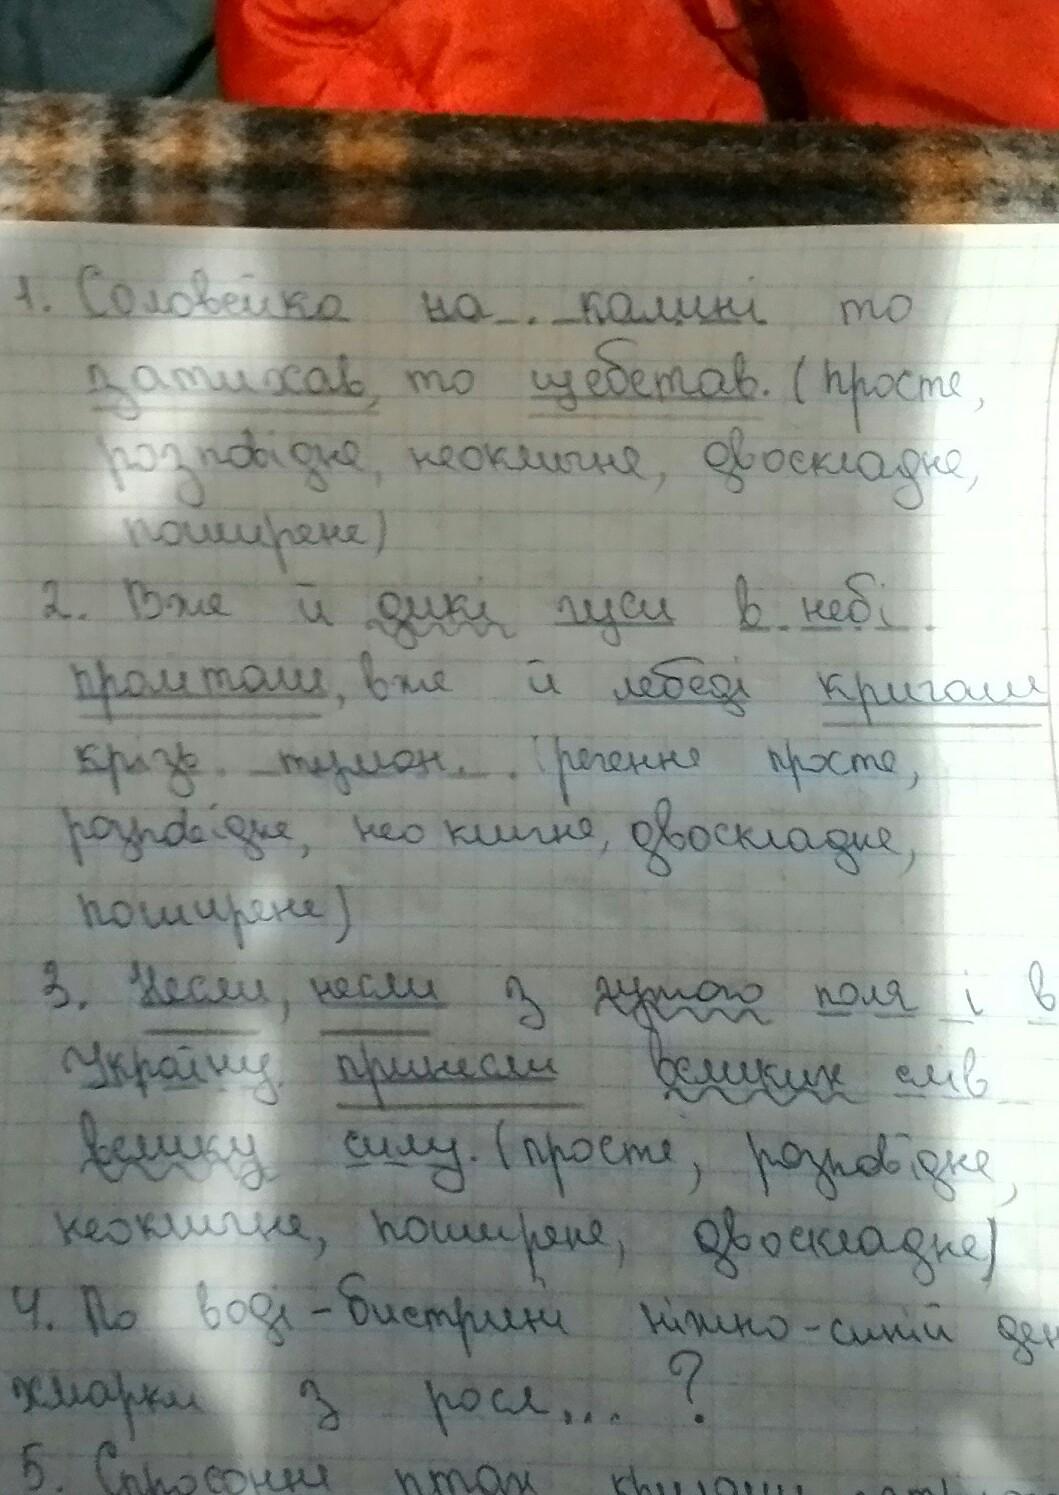 1. Соловейко на калині то
затихав, то щебетав. (просте,
розповідне, неоклична, двоскладне,
поширене)
2. Вже й дикі гуси в небі
пролітали, вже й лебеді кричали
крізь туман. (речення просте,
розповідне, неоклична, двоскладне,
поширене)
3. Несли, несли з чужого поля і в
Україну принесли великих слів
велику силу. (просте, розповідне,
неоклична, поширене, двоскладне)
4. По воді-бистрині ніжно-синій ден
хмарки з роси... ?
5. Спросоння птах крилами